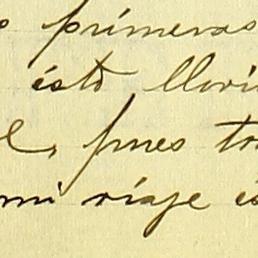 primeras
ésto llovi
pues to
mi viaje es